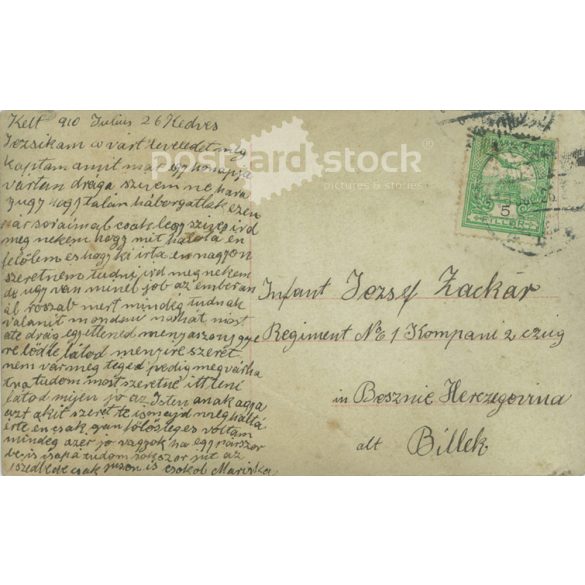 Kelt 910 Julius 26 Kedves
Jozsikam a várt leveledet meg
kaptam amit már egy honapja
vártam draga szivem ne hara
gugy hogy talán háborgatlak ezen
pár soraimal csak legy szives ird
meg nekem hogy mit halota én
felölem es hogy ki irta en nagyon
szeretném tudni ird meg nekem
de ugy van minel job az ember an
ál roszab mert mindég tudnak
valamit mondani
ate drága egyetlened menyaszony
latod menyire szeret
nem var még teged pedig meg várha
tna tudom most szeretne itt leni
latod mijen jo az Isten anak agya
azt akit szeret te ismejd
érte en csak
mindeg azer jo vagyok ha egy párszor
tudom sokszor
csak puszon is csokol Mariska
postcard stock®
pictures & stories
5
FILLER
Infant Jozsef Zackár
Regiment No 1 Kompani 2 czug
in Bosznie Herczegovina
alt Billek